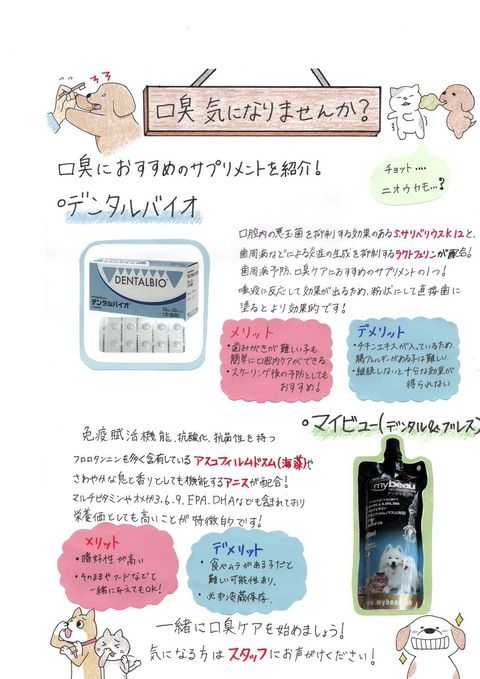 口臭 気になりませんか?
チョット....
ニオウカモ...?
口臭におすすめのサプリメントを紹介!
デンタルバイオ
口腔内の悪玉菌を抑制する効果のあるS.サリバリウスK12と、
歯周病などによる炎症の生成を抑制するラクトフェリンが配合!
歯周病予防、口臭ケアにおすすめのサプリメントの1つ!
唾液に反応して効果が出るため、粉状にして直接歯に
塗るとより効果的です!
DENTALBIO
デンタルバイオ
メリット
・歯みがきが難しい子も
簡単に口腔内ケアができる。
・スケーリング後の予防としても
おすすめ!
デメリット
・チキンエキスが入っているため、
鶏アレルギーがある子は難しい。
・継続しないと十分な効果が
得られない
マイビュー(デンタル&ブレス)
免疫賦活機能、抗酸化、抗菌性を持つ
フロロタンニンを多く含有しているアスコフィルムドスム(海藻)や
さわやかな息と香りとしても機能するアニスが配合!
マルチビタミンやオメガ3.6.9、EPA、DHAなども含まれており
栄養価としても高いことが特徴的です!
mybeau
メリット
・嗜好性が高い
・そのままやフードなどと
一緒に与えてもOK!
デメリット
・食べムラがある子だと
難しい可能性あり。
・必ず冷蔵保存。
一緒に口臭ケアを始めましょう!
気になる方はスタッフにお声がけください!